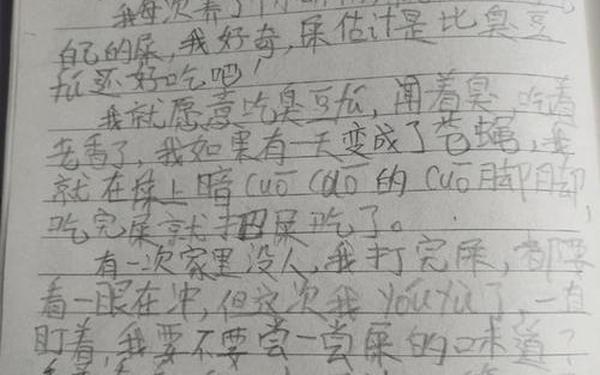 我每次养了
自己的屎,我好奇,屎估计是比臭豆
fǔ还好吃吧!
我就愿意吃臭豆fǔ,闻着臭,吃着
老香了,我如果有一天变成了苍蝇,我
就在屎上暗cuō cuō的cuō脚脚,
吃完屎就把屎吃了。
有一次家里没人,我打完屎,都要
看一眼在冲,但这次我yóuyù了,一直
盯着,我要不要尝一尝屎的味道?